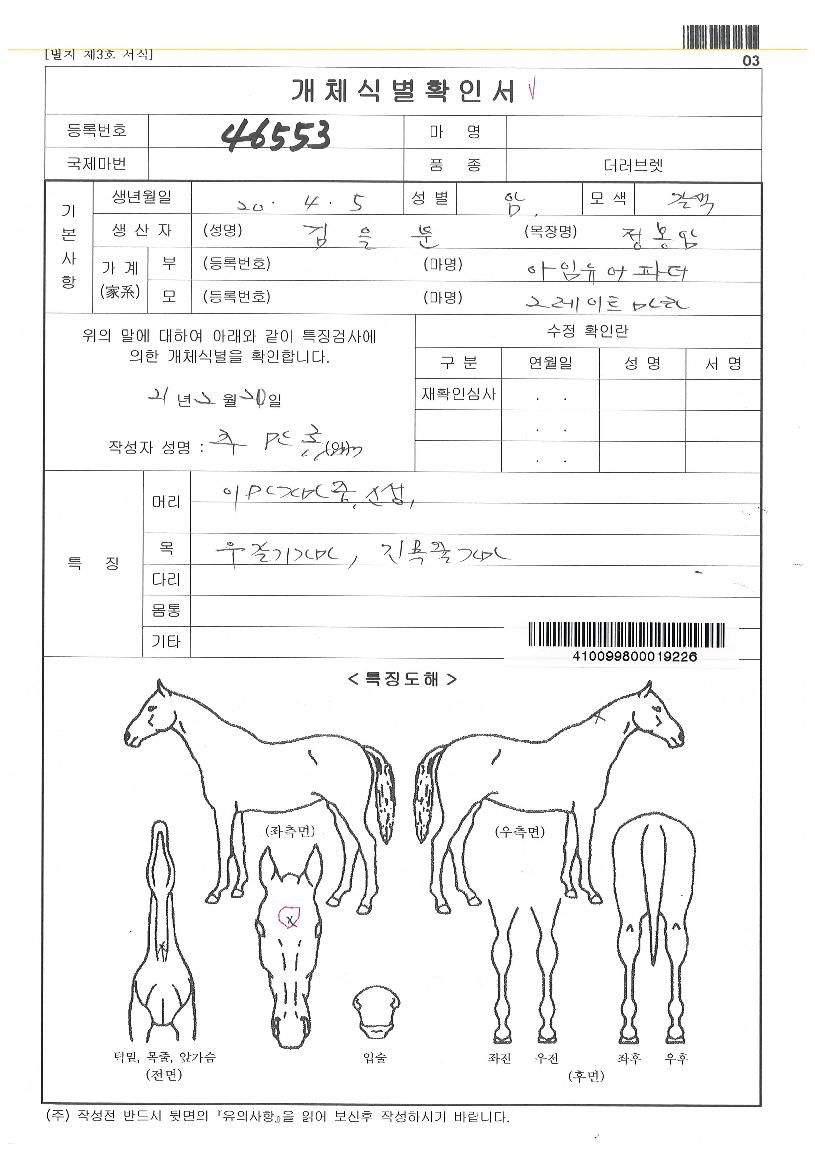 [별지 제3호 서식]
03
개체식별확인서
등록번호 46553 마 명
국제마번 품 종 더러브렛
기본사항
생년월일 20. 4. 5 성 별 암 모 색 갈색
생 산 자 (성명) 김 을 분 (목장명) 정봉암
가 계 (家系) 부 (등록번호) (마명) 아임유어파더
모 (등록번호) (마명)
위의 말에 대하여 아래와 같이 특징검사에
의한 개체식별을 확인합니다.
21년 2월 20일
작성자 성명 :
수정 확인란
구 분 연월일 성 명 서 명
재확인심사 . .
. .
. .
특 징
머리
목
다리
몸통
기타
410099800019226
< 특징도해 >
(좌측면) (우측면)
턱밑, 목줄, 앞가슴
(전면)
입술
좌전 우전 좌후 우후
(후면)
(주) 작성전 반드시 뒷면의 『유의사항』을 읽어 보신후 작성하시기 바랍니다.